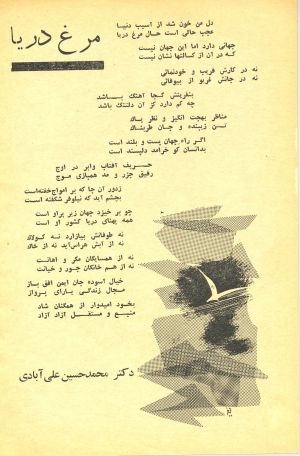 مرغ دریا
دل من خون شد از آسیب دنیا
عجب حالی است حال مرغ دریا
جهانی دارد اما این جهان نیست
که در آن از کسالتها نشان نیست
نه در کارش فریب و خودنمائی
نه در جانش غریو از بیوفائی
بنفرینش کجا آهنگ باشد
چه کم دارد کز آن دلتنگ باشد
مناظر بهجت انگیز و نظر پاک
تن زیبنده و جان طربناک
اگر راه جهان پست و بلند است
بدانسان کو خرامد دلپسند است
حریف آفتاب وابر در اوج
رفیق جزر و مد همبازی موج
زدور آن جا که بر امواج خفته‌است
بچشم آید که نیلوفر شکفته است
چو بر خیزد جهان زیر پر اوست
همه پهنای دریا کشور او است
نه طوفانش بیازارد نه کولاک
نه از آبش هراس آید نه از خاک
نه از همسایگان مکر و اهانت
نه از هم خانگان جور و خیانت
خیال آسوده جان ایمن افق باز
مجال زندگی یارای پرواز
بخود امیدوار از همگنان شاد
منیع و مستقل آزاد آزاد
دکتر محمدحسین علی‌آبادی